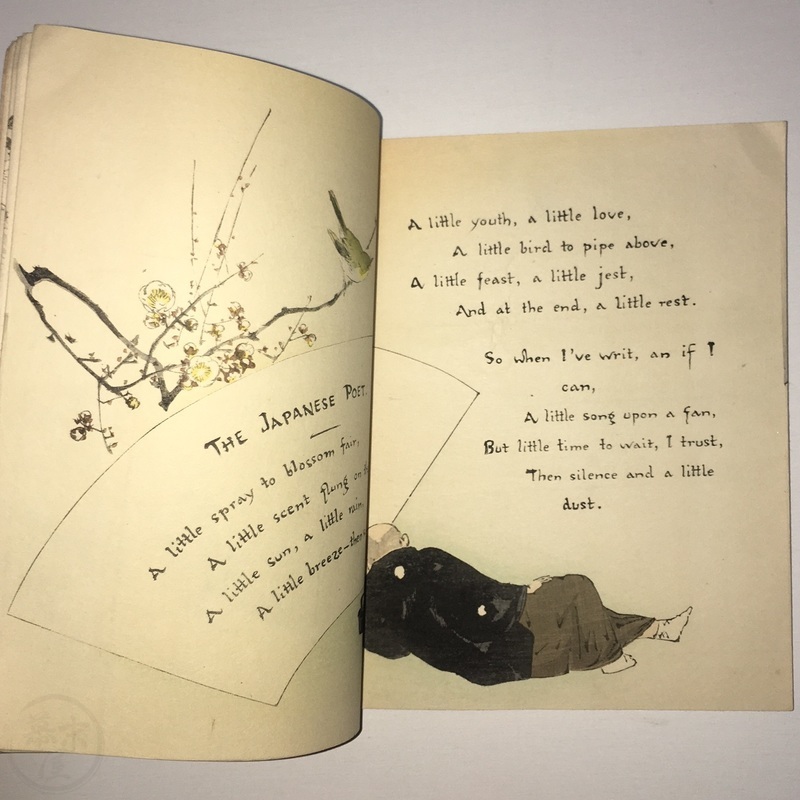 THE JAPANESE POET.
A little spray to blossom fair,
A little scent flung on
A little sun, a little rain,
A little breeze—
A little youth, a little love,
A little bird to pipe above,
A little feast, a little jest,
And at the end, a little rest.
So when I've writ, an if I
can,
A little song upon a fan,
But little time to wait, I trust,
Then silence and a little
dust.